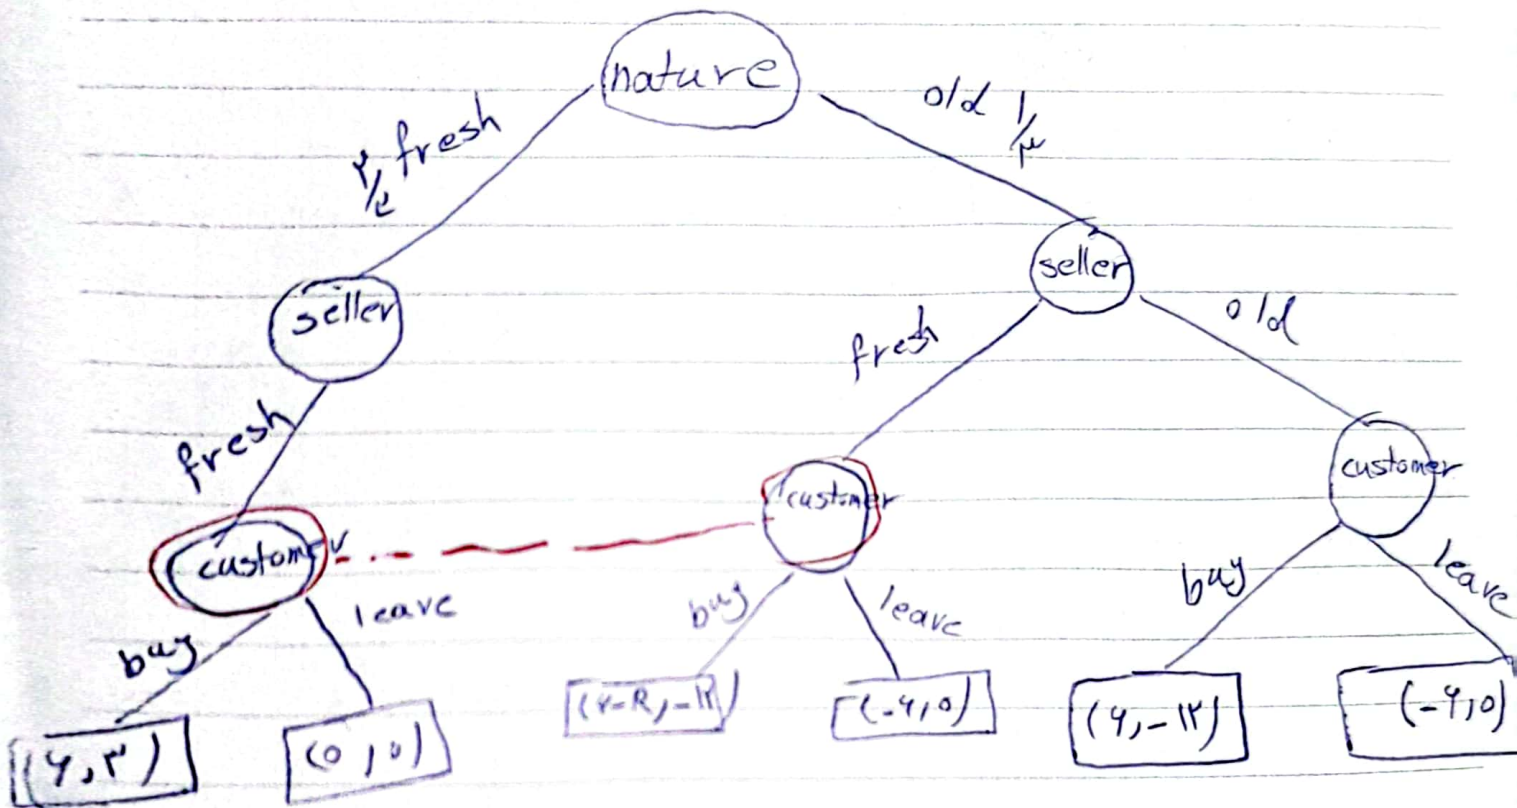 nature
fresh
old ۱/۳
seller
seller
fresh
old
fresh
customer
customer
customer
buy
leave
buy
leave
buy
leave
(۶,۳)
(۰,۰)
(۶-R,-۱۲)
(-۶,۰)
(۶,-۱۲)
(-۶,۰)